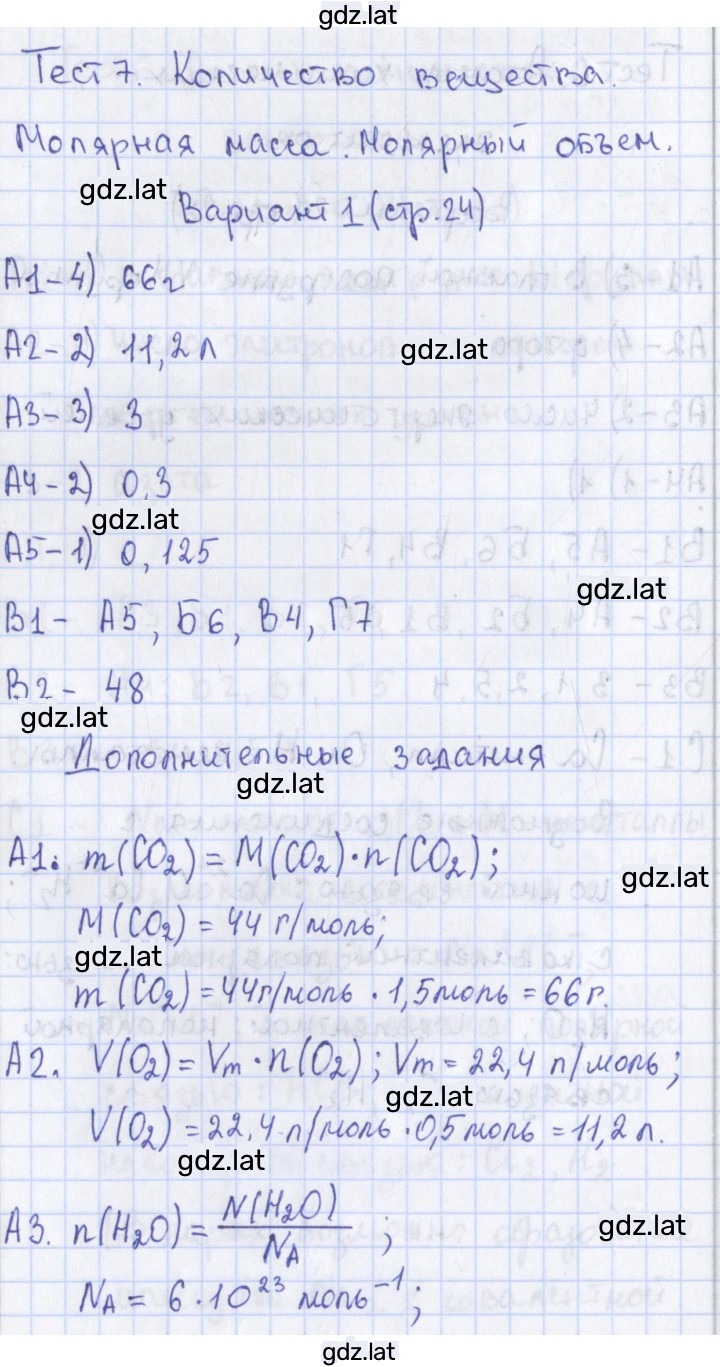 gdz.lat
Тест 7. Количество вещества.
Молярная масса. Молярный объем.
gdz.lat
Вариант 1 (стр.24)
А1-4) 66г
А2-2) 11,2л
gdz.lat
А3-3) 3
А4-2) 0,3
gdz.lat
А5-1) 0,125
gdz.lat
В1- А5, Б6, В4, Г7
В2- 48
gdz.lat
Дополнительные задания
gdz.lat
А1. m(CO₂)=M(CO₂)·n(CO₂);
gdz.lat
M(CO₂)=44 г/моль;
gdz.lat
m(CO₂)=44г/моль · 1,5моль=66г.
А2. V(O₂)=Vm·n(O₂); Vm=22,4 л/моль;
gdz.lat
V(O₂)=22,4 л/моль·0,5моль=11,2л.
gdz.lat
А3. n(H₂O)=N(H₂O)/NA;
gdz.lat
NA=6·10²³ моль⁻¹;
gdz.lat